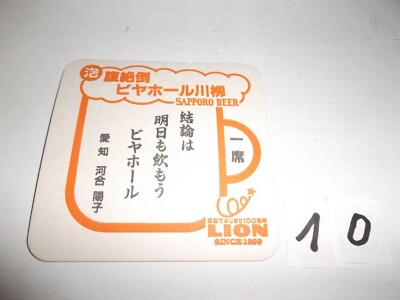 泡 腹絶倒
ビヤホール川柳
SAPPORO BEER
一席
結論は
明日も飲もう
ビヤホール
愛知 河合 陽子
LION
SINCE 1899
10